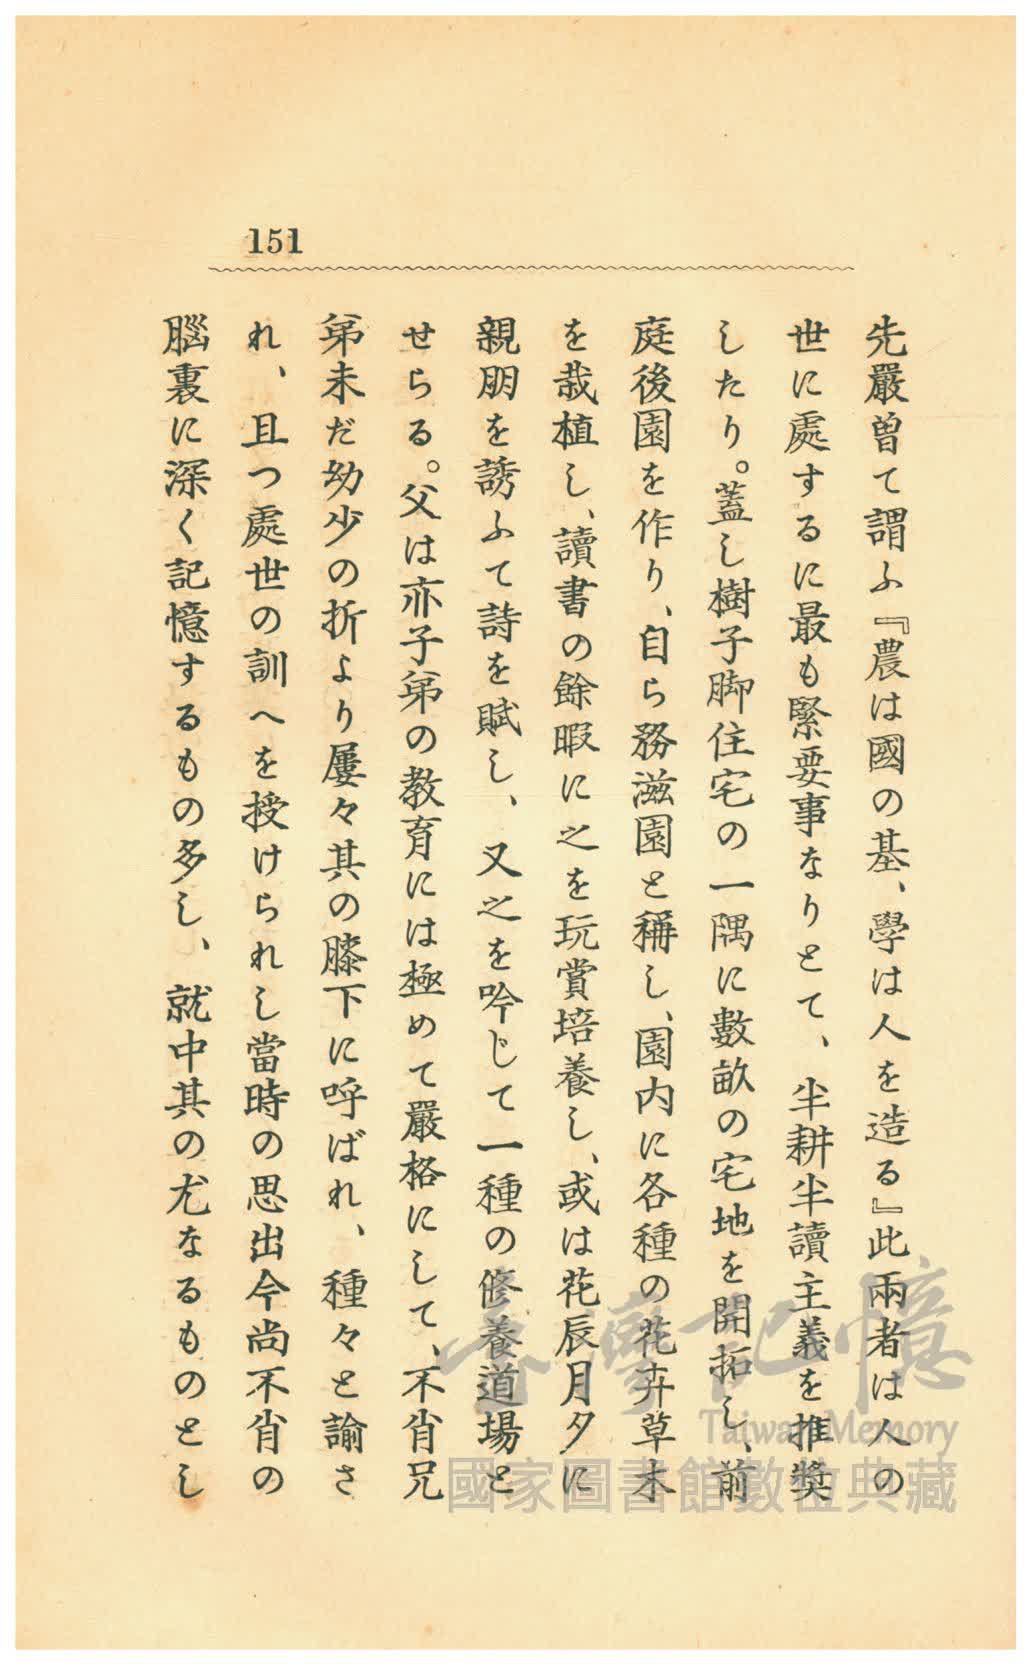 151
先嚴曾て謂ふ『農は國の基、學は人を造る』此兩者は人の
世に處するに最も緊要事なりとて、半耕半讀主義を推奬
したり。蓋し樹子脚住宅の一隅に數畝の宅地を開拓し、前
庭後園を作り、自ら務滋園と稱し、園内に各種の花卉草木
を栽植し、讀書の餘暇に之を玩賞培養し、或は花辰月夕に
親朋を誘ふて詩を賦し、又之を吟じて一種の修養道場と
せらる。父は亦子弟の教育には極めて嚴格にして、不肖兄
弟未だ幼少の折より屢々其の膝下に呼ばれ、種々と諭さ
れ、且つ處世の訓へを授けられし當時の思出今尚不肖の
腦裏に深く記憶するもの多し、就中其の尤なるものとし
臺灣記憶
Taiwan Memory
國家圖書館數位典藏